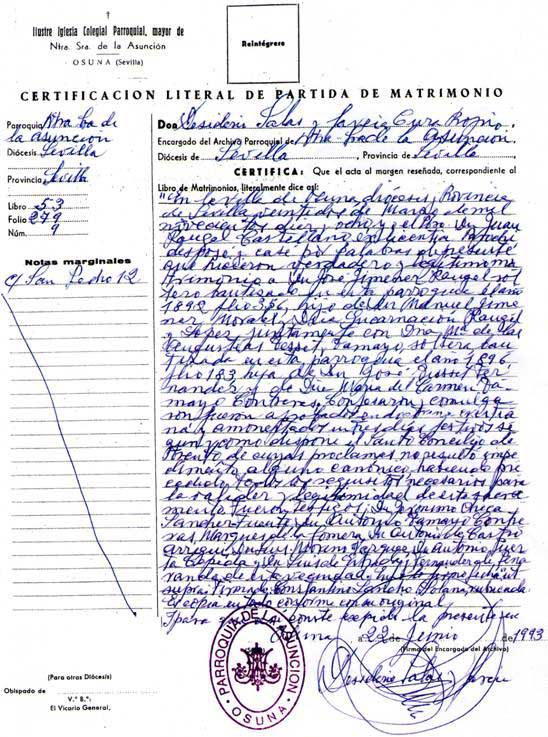 †
Ilustre Iglesia Colegial Parroquial, mayor de
Ntra. Sra. de la Asunción
OSUNA (Sevilla)
Reintégrese
CERTIFICACION LITERAL DE PARTIDA DE MATRIMONIO
Parroquia Ntra Sra de
la asunción
Diócesis Sevilla
Provincia Sevilla
Libro 53
Folio 279
Núm. 9
Notas marginales
c/ San Pedro 12
Don Desiderio Salas y García Cura Propio
Encargado del Archivo Parroquial de Ntra Sra de la Asunción
Diócesis de Sevilla, Provincia de Sevilla
CERTIFICA: Que el acta al margen reseñada, correspondiente al
Libro de Matrimonios, literalmente dice así:
"En la villa de Osuna, diócesis, Provincia
de Sevilla veintidos de Marzo de mil
novecientos diez y ocho, y el Don Juan
Rangel Castellano
desposé y casé por palabras de presente
que hicieron verdadero y legítimo ma
trimonio a Don José Jiménez Rangel sol
tero bautizado en esta parroquia el año
1892 folio 356, hijo de Don Manuel Jimé
nez Morales, y Doña Encarnación Rangel
y López juntamente con Dña Mª de las
Angustias Tamayo, soltera bau
tizada en esta parroquia el año 1896
folio 183 hija de Don José Fer
nandez y de Dña María del Carmen Ta
mayo Contreras, confesaron, comulga
ron fueron aprobados en doctrina cristia
na y amonestados en tres días festivos se
gun y como dispone el Santo Concilio de
Trento de cuyas proclamas no resultó impe
dimento alguno canónico habiendo pre
cedido todos los requisitos necesarios para
la validez y legitimidad de este sacra
mento fueron testigos, Don Jerónimo Chica
Sánchez Don Antonio Tamayo Contre
ras Marqués de la Gomera Don Antonio de Castro
Don Luis Moreno Don Antonio
Cepeda y Don Luis de Fernández de Peña
randa de esta vecindad y lo firmé fecha ut
supra firmado: Constantino rubricado
Es copia en todo conforme con su original
Y para que conste expido la presente en
Osuna a 22 Junio de 1993
(Sello)
(Firma del Encargado del Archivo)
Desiderio Salas García
PARROQUIA DE LA ASUNCION
OSUNA
(Para otras Diócesis)
Obispado de
V.º B.º:
El Vicario General,